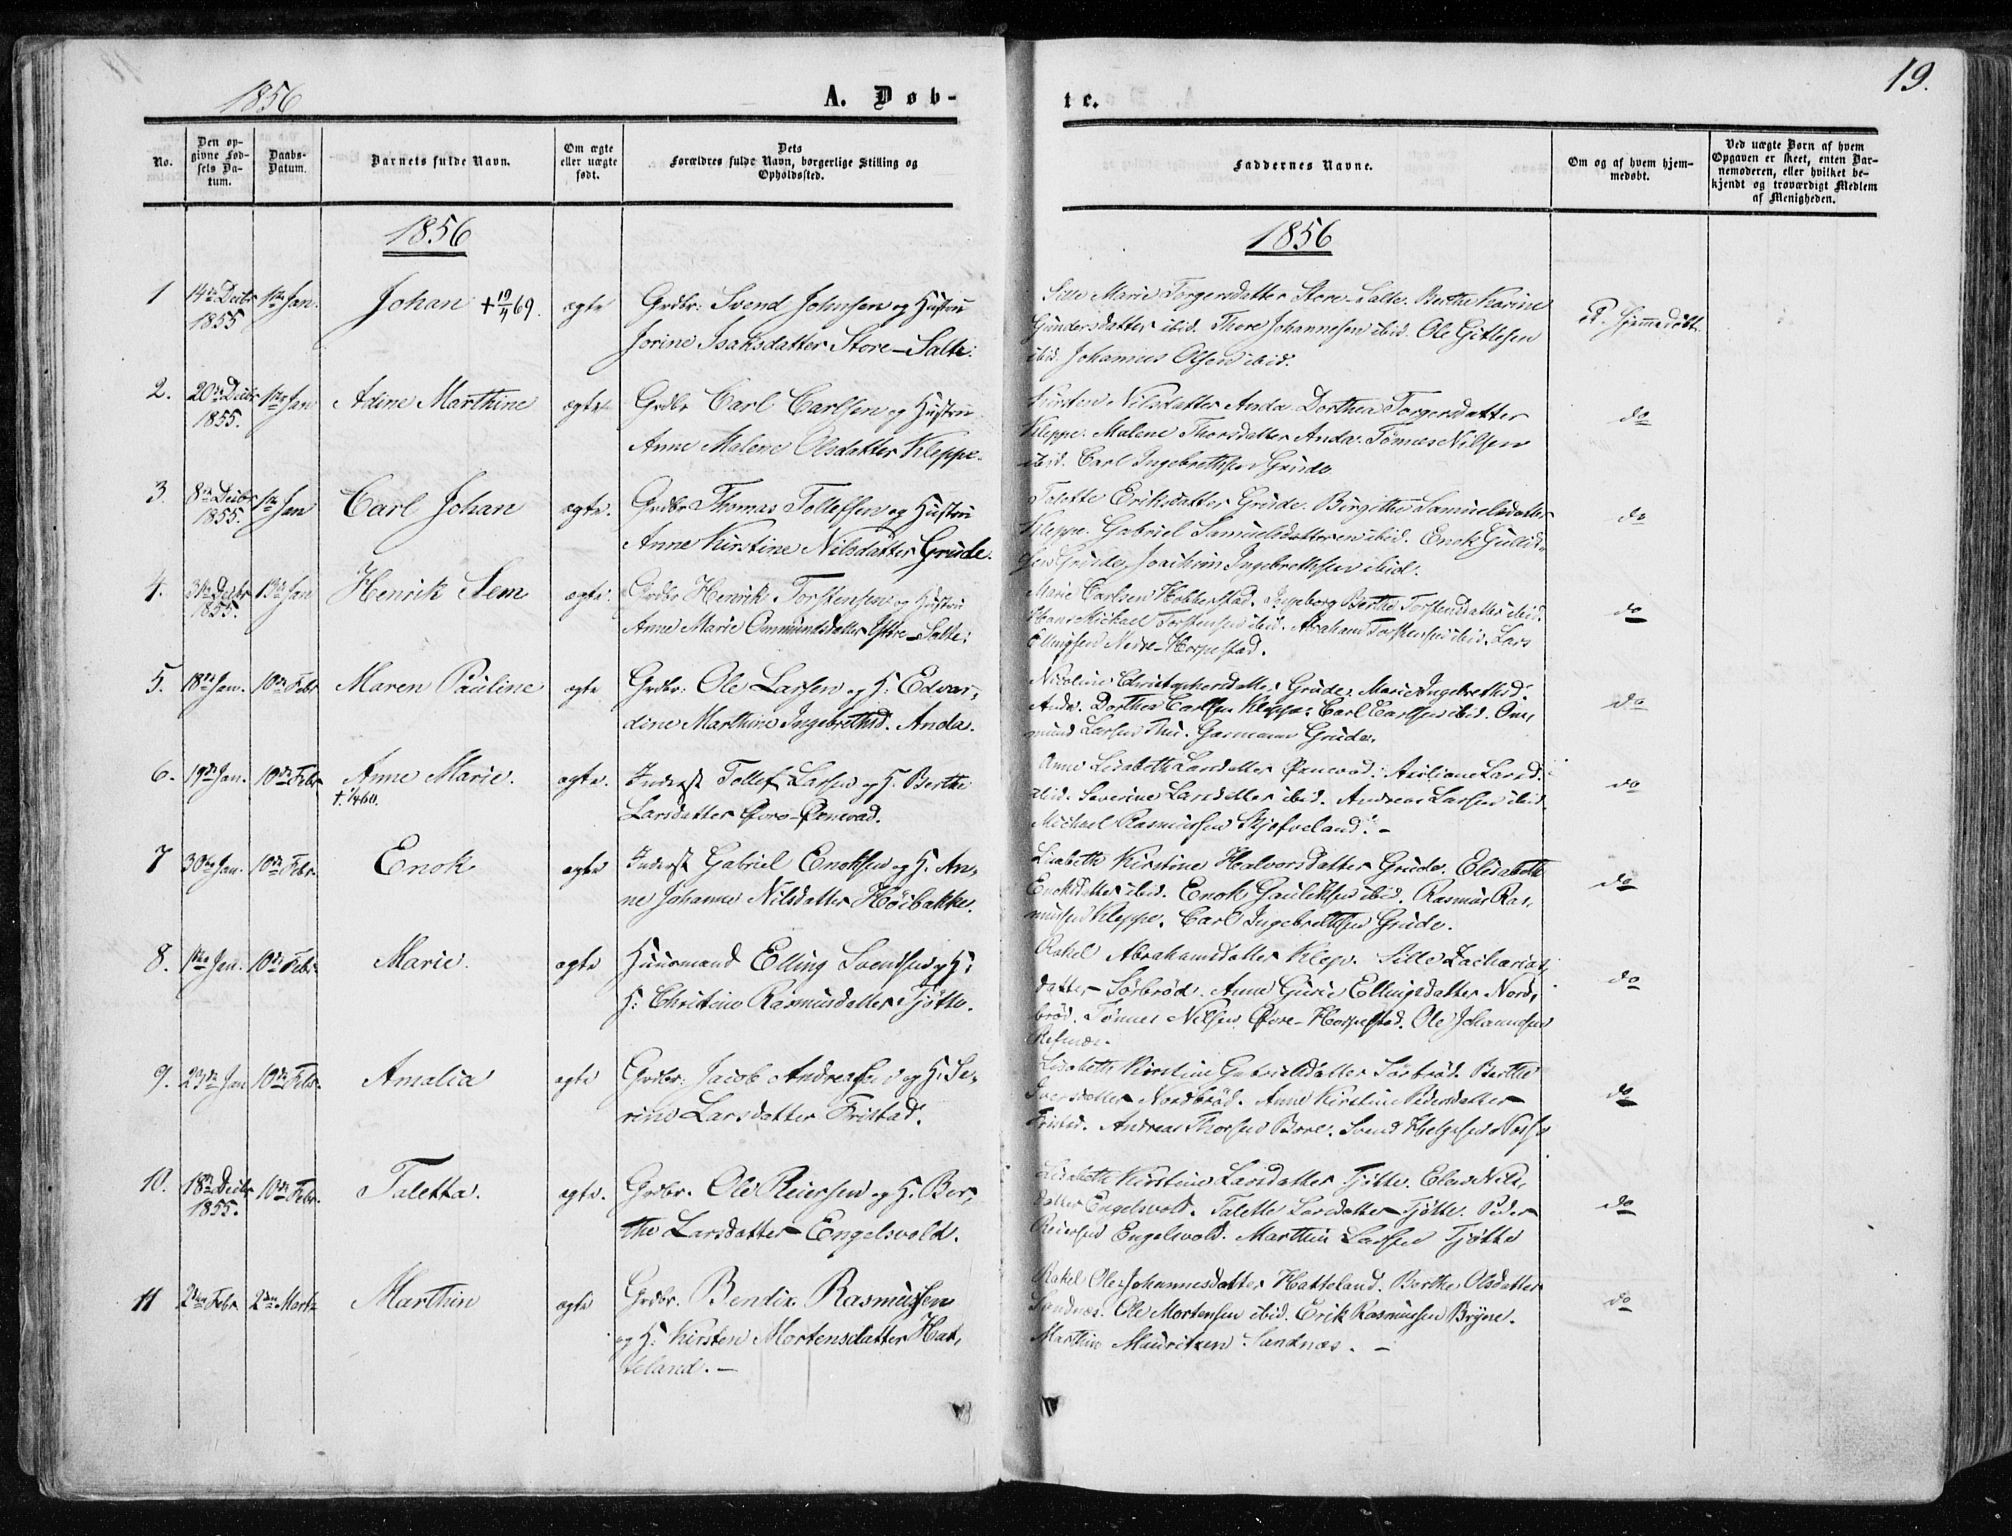 1856 A. Døb- te. 19.
No.
Den op-
givne Fød-
sels Da-
tum.
Daabs-
Datum.
Barnets fulde Navn.
Om ægte
eller uægte
født.
Dets
Forældres fulde Navn, borgerlige Stilling og
Opholdssted.
Faddernes Navne.
Om og af hvem hjem-
medøbt.
Ved uægte Børn af hvem
Opgaven er skeet, enten Bar-
nemoderen, eller hvilket be-
kjendt og troværdigt Medlem
af Menigheden.
1856
1856
1 14de Decbr 1ste Jan. Johan + 19/4 69. ægte Grdbr: Svend Johnsen og Hustru
1855 Jorine Isaksdatter Store-Salte.
Sille Marie Torgersdatter Store-Salte. Berthe Karine
Gundersdatter ibid. Thore Johannesen ibid. Ole Gitlesen
ibid. Johannes Olsen ibid.
Hjemmedøbt
2. 20de Decbr 1ste Jan Adine Marthine ægte Grdbr Carl Carlsen og Hustru
1855. Anne Malene Olsdatter Kleppe.
Kirsten Nilsdatter Anda Dorthea Torgersdatter
Kleppe. Malene Thorsdatter Anda. Tønnes Nilsen
ibid. Carl Ingebrethsen Grude
do
3. 8de Decbr 1ste Jan Carl Johan ægte. Grdbr Thomas Tollefsen og Hustru
1855. Anne Kirstine Nilsdatter Grude.
Talette Eriksdatter Grude. Birgithe Samuelsdatter
Kleppe. Gabriel Samuelsdatteren ibid. Enok
Grude, Joachim Ingebrethsen ibid.
do
4. 31te Decbr 13de Jan Henrik Sem ægte. Grdbr Henrik Torstensen og Hustru
1855. Anne Marie Ommundsdatter Store-Salte.
Marie Carlsen Hobberstad. Ingeborg Berthe Torstensdatter ibid.
Hans Michael Torstensen ibid. Abraham Torstensen ibid. Lars
Ellingsen Nedre-Horpestad.
do
5. 18de Jan. 10de Febr Maren Pauline ægte Grdbr: Ole Larsen og H. Edvar,
dine Marthine Ingebrethsd. Anda.
Nicoline Christophersdatter Grude. Marie Ingebrethsd.
Anda. Dorthea Carlsen Kleppe. Carl Carlsen ibid. Om,
mund Larsen Thu. Garmann Grude.
do
6. 19de Jan. 10de Febr. Anne Marie. ægte. Inderst Tollef Larsen og H. Berthe
+ 1/4 60. Larsdatter Øvre-Øxnevad.
Anne Lisabeth Larsdatter Øxnevad. Larsd.
ibid. Severine Larsdatter ibid. Andreas Larsen ibid
Michael Rasmussen Skjefveland. -
do
7 30te Jan. 10de Febr. Enok ægte Inderst Gabriel Enoksen og H. An,
ne Johanne Nilsdatter Høibakke.
Lisabeth Kirstine Halvorsdatter Grude. Elisabeth
Enoksdatter ibid. Enok ibid. Rasmus Ras,
mussen Kleppe. Carl Ingebrethsen Grude.
do
8. 1ste Jan. 10de Febr. Marie. ægte Huusmand Elling Svendsen og H:
H: Christine Rasmusdatter Tjøtte.
Rakel Abrahamsdatter Klep. Sille Zacharias,
datter Sørbrød. Anne Gurie Ellingsdatter Nord,
brød. Tønnes Nilsen Øvre-Horpestad. Ole Johannesen
Refsnæs.
do
9. 23de Jan 10de Febr. Amalia ægte Grdbr: Jacob Andreasen og H. Se,
rine Larsdatter Fristad.
Lisabeth Kirstine Gabrielsdatter Sørbrød. Berthe
Iversdatter Nordbrød. Anne Kirstine Pedersdatter
Fristad. Andreas Thorsen Bore. Svend Helgesen
do
10. 18de Decbr 10de Febr. Taletta. ægte. Grdbr. Ole Reiersen og H. Ber,
1855. the Larsdatter Engelsvold.
Lisabeth Kirstine Larsdatter Tjøtte. Elen Nils,
datter Engelsvold. Talette Larsdatter Tjøtte. Peder
Reiersen Engelsvold. Marthin Larsen Tjøtte
do
11 2den Febr 2den Marts Marthin ægte Grdbr. Bendix Rasmussen
og H: Kirsten Mortensdatter Hat,
teland. -
Rakel Ole Johannesdatter Hatteland. Berthe Olsdatter
Sandnæs. Ole Mortensen ibid. Erik Rasmussen Bryne.
Marthin Mauritzen Sandnæs. -
do